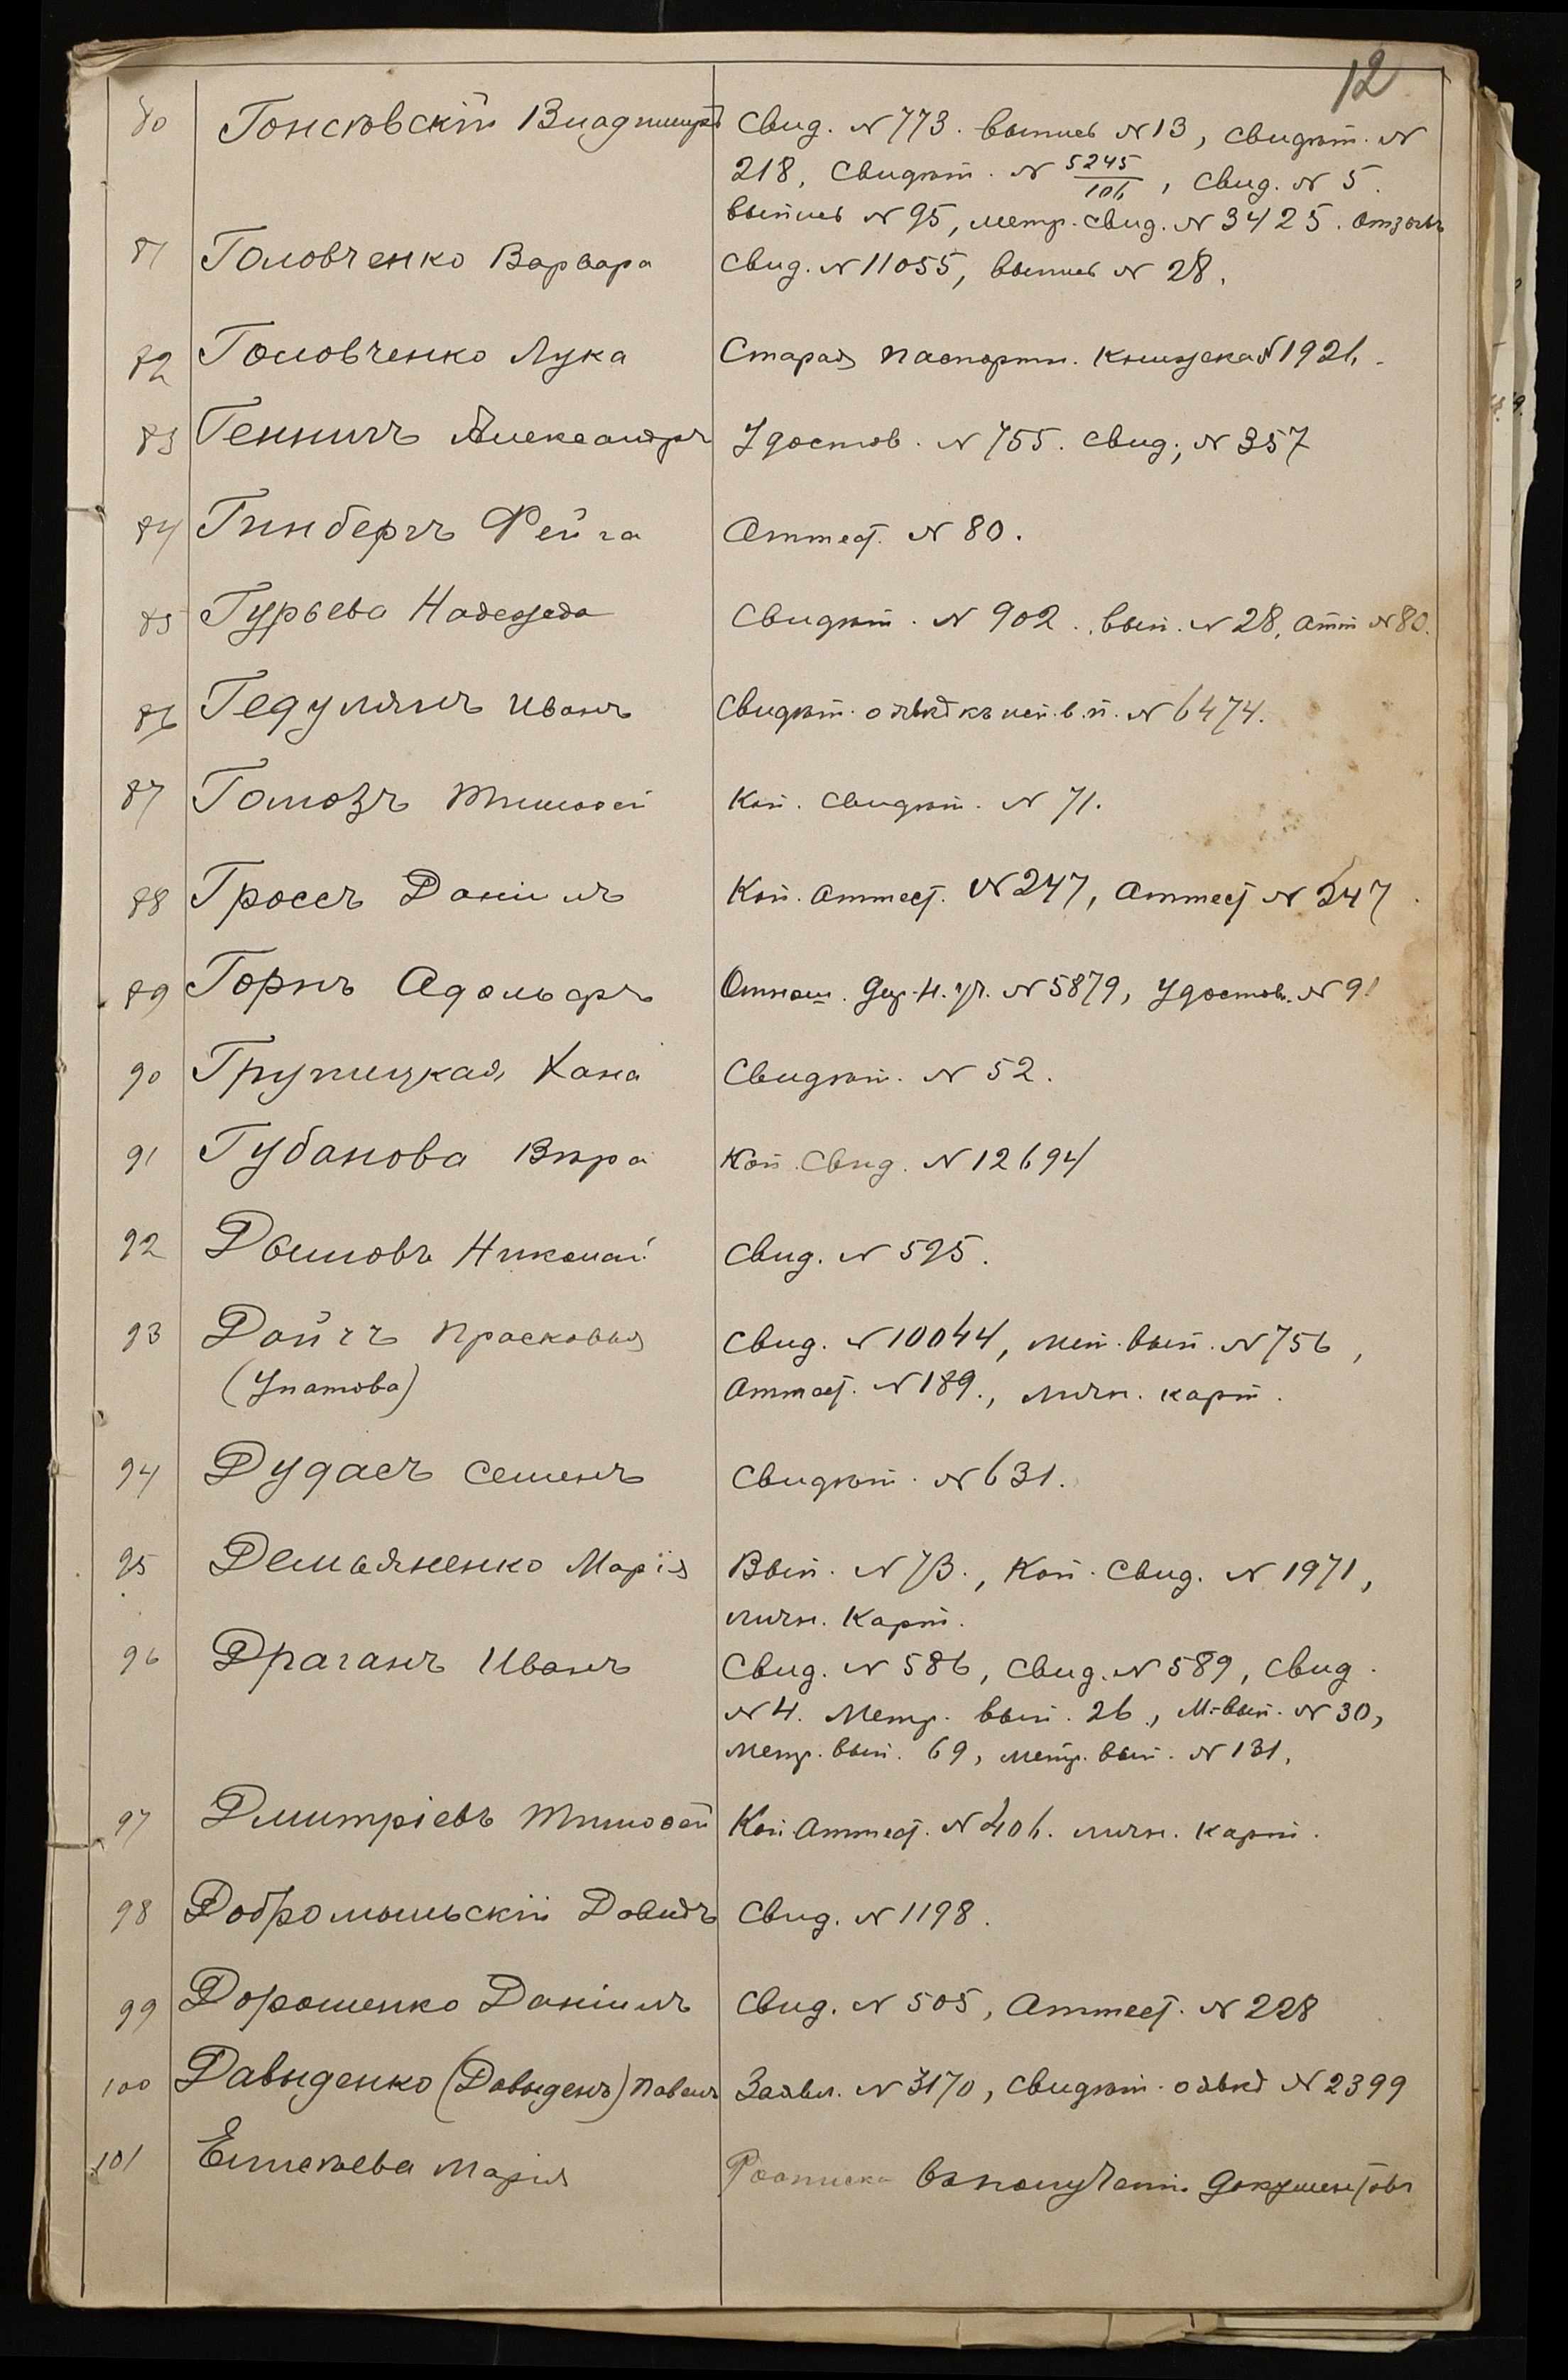 12
80 Гонсювскій Владиміръ Свид. № 773. выпись № 13, свидѣт. №
218, свидѣт. № 5245/106, свид. № 5.
выпись № 95, метр. свид. № 3425. отзывъ
81 Головченко Варвара Свид. № 11055, выпись № 28.
82 Головченко Лука Старая паспортн. книжка № 1921.
83 Геннигъ Александръ Удостов. № 755. свид. № 357
84 Гинбергъ Фейга Аттест. № 80.
85 Гурьева Надежда Свидѣт. № 902. вып. № 28, атт № 80.
86 Гедулянъ Иванъ Свидѣт. о явкѣ къ исп. в. п. № 6474.
87 Гомозъ Тимофей Коп. свидѣт. № 71.
88 Гроссъ Даніилъ Коп. аттест. № 247, аттест № 247.
89 Горнъ Адольфъ Отнош. Дир. Н. уч. № 5879, Удостов. № 91
90 Групицкая Хана Свидѣт. № 52.
91 Губанова Вѣра Коп. Свид. № 12694
92 Долиновъ Николай Свид. № 595.
93 Дойчъ Прасковья Свид. № 10044, мет. вып. № 756,
(Упатова) Аттест. № 189., личн. карт.
94 Дудасъ Семенъ Свидѣт. № 631.
95 Демьяненко Марія Вып. № 73., Коп. свид. № 1971,
личн. карт.
96 Драганъ Иванъ Свид. № 586, свид. № 589, свид.
№ 4. Метр. вып. 26., М. вып. № 30,
метр. вып. 69, метр. вып. № 131,
97 Дмитріевъ Тимофей Коп. Аттест. № 406. личн. карт.
98 Добромыльскій Давидъ Свид. № 1198.
99 Дорошенко Даніилъ Свид. № 505, Аттест. № 228
100 Давыденко (Давыденъ) Павелъ Заявл. № 3170, свидѣт. о явкѣ № 2399
101 Елисѣева Марія Росписка въ полученіи документовъ